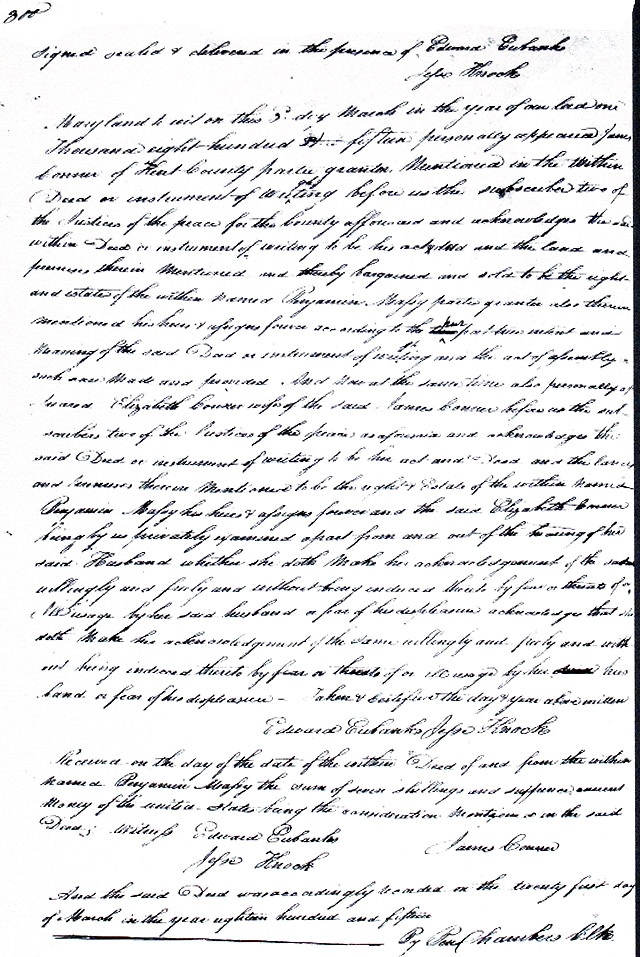 300
signed sealed & delivered in the presence of Edward Eubanks
Jesse Knock
Maryland to wit on this 3d day March in the year of our Lord one
Thousand eight hundred fifteen personally appeared James
Conner of Kent County partie grantor Mentioned in the within
Deed or instrument of writing before us the subscriber two of
the Justices of the peace for the County afforesaid and acknowledges the
within Deed or instrument of writing to be his act & deed and the land and
premises therein Mentioned and thereby bargained and sold to be the right
and estate of the within Named Benjamin Massy partie grantee also therein
mentioned his heirs & assigns forever according to the purport true intent and
Meaning of the said Deed or instrument of writing and the act of assembly
such case Made and provided. And now at the same time also personally ap
peared Elizabeth Conner wife of the said James Conner before us the sub
scribers two of the Justices of the peace as aforesaid and acknowledges the
said Deed or instrument of writing to be her act and Deed and the land
and premises therein Mentioned to be the right & Estate of the within Named
Benjamin Massy his heirs & assigns forever and the said Elizabeth Conner
being by us privately examined apart from and out of the hearing of her
said Husband whether she doth Make her acknowledgement of the same
willingly and freely and without being induced thereto by fear or threats of or
Ill usage by her said husband or fear of his displeasure acknowledges that she
doth Make her acknowledgment of the same willingly and freely and with
out being induced thereto by fear or threats of or ill usage by her hus
band or fear of his displeasure - Taken & Certified the day & year above written
Edward Eubanks Jesse Knock
Received on the day of the date of the within Deed of and from the within
named Benjamin Massy the sum of seven shillings and sixpence current
Money of the united states being the consideration Mentioned in the said
Deed; Witness Edward Eubanks
James Conner
Jesse Knock
And the said Deed was accordingly recorded on the twenty first day
of March in the year eighteen hundred and fifteen
By Ben Chambers Clk